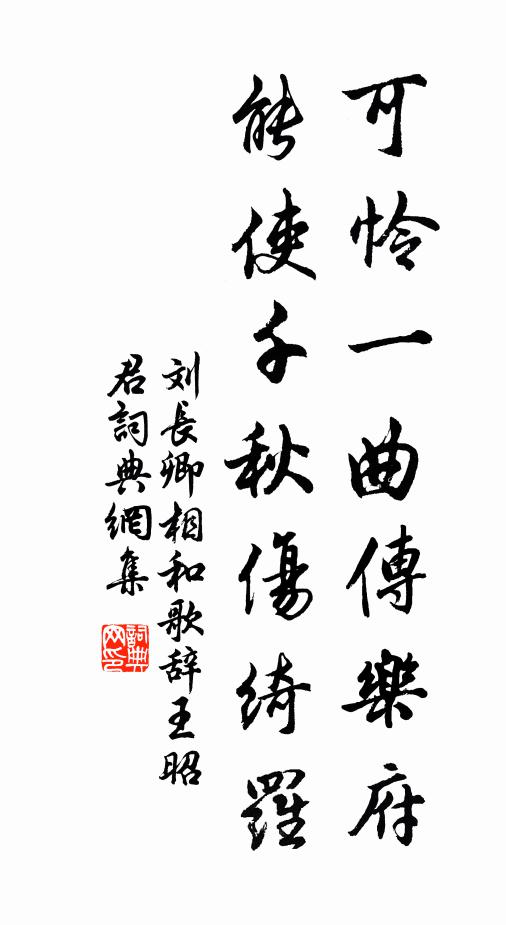 可憐一曲傳樂府
能使千秋傷綺羅
刘長卿相和歌辞王昭
君詞典網集
詞典網印